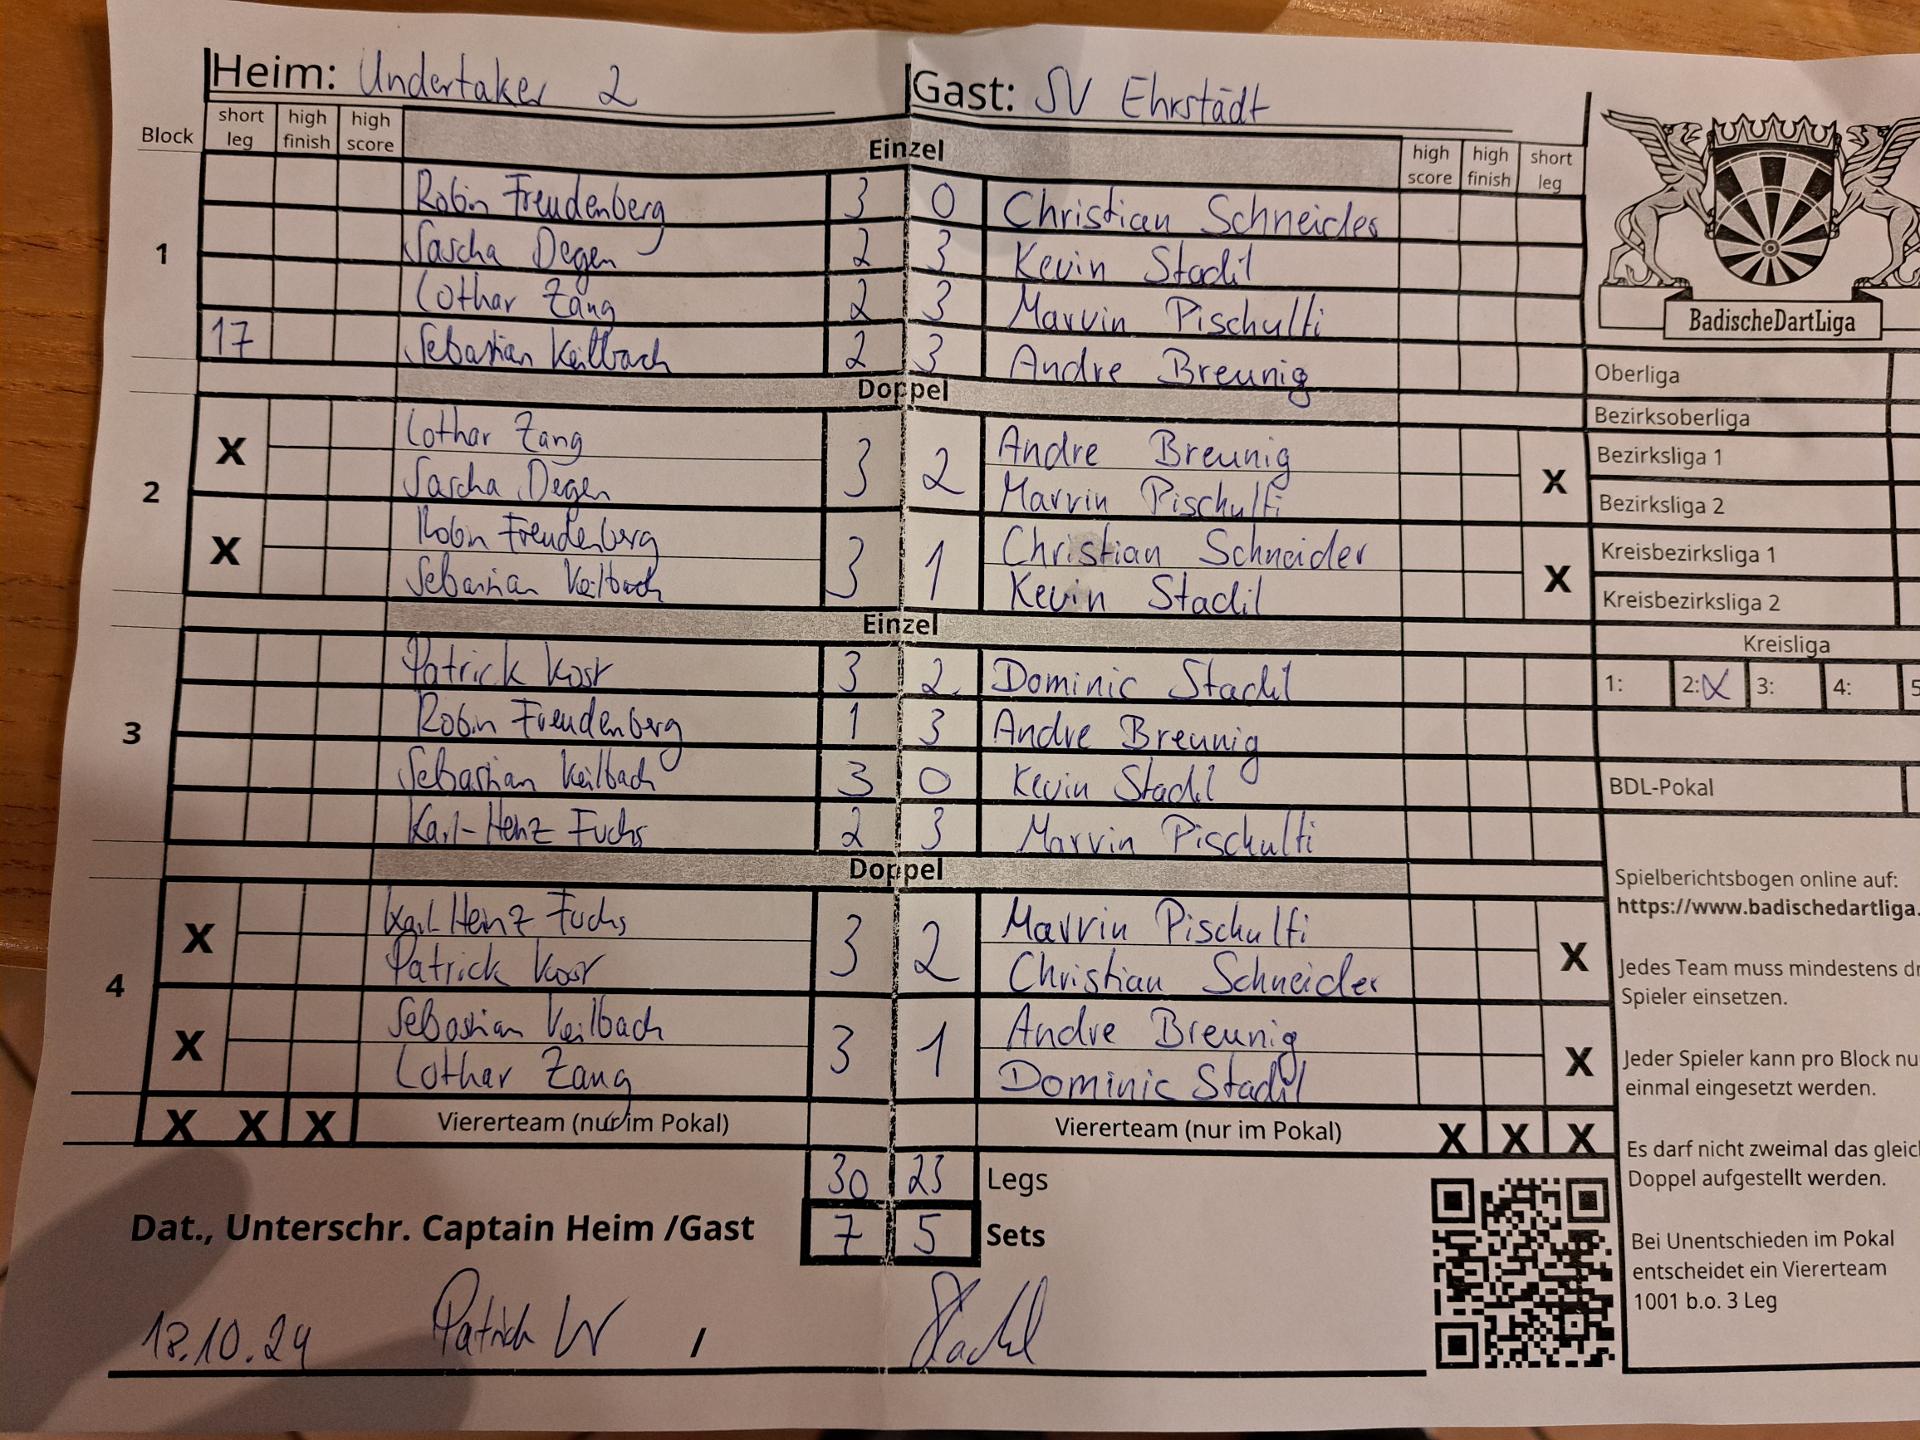 Heim: Undertaker 2 Gast: SV Ehrstädt
Block short leg high finish high score Einzel high score high finish short leg
1
Robin Freudenberg 3 0 Christian Schneider
Sascha Degen 2 3 Kevin Stadil
Lothar Zang 2 3 Marvin Pischulti
17 Sebastian Keilbach 2 3 Andre Breunig
Doppel
2
X Lothar Zang 3 2 Andre Breunig X
Sascha Degen Marvin Pischulti
X Robin Freudenberg 3 1 Christian Schneider X
Sebastian Keilbach Kevin Stadil
Einzel
3
Patrick Kost 3 2 Dominic Stadil
Robin Freudenberg 1 3 Andre Breunig
Sebastian Keilbach 3 0 Kevin Stadil
Karl-Heinz Fuchs 2 3 Marvin Pischulti
Doppel
4
X Karl Heinz Fuchs 3 2 Marvin Pischulti X
Patrick Kost Christian Schneider
X Sebastian Keilbach 3 1 Andre Breunig X
Lothar Zang Dominic Stadil
X X X Viererteam (nur im Pokal) Viererteam (nur im Pokal) X X X
30 23 Legs
Dat., Unterschr. Captain Heim /Gast 7 5 Sets
18.10.24 Patrick / Stadil
BadischeDartLiga
Oberliga
Bezirksoberliga
Bezirksliga 1
Bezirksliga 2
Kreisbezirksliga 1
Kreisbezirksliga 2
Kreisliga
1: 2: X 3: 4: 5
BDL-Pokal
Spielberichtsbogen online auf:
https://www.badischedartliga.
Jedes Team muss mindestens
Spieler einsetzen.
Jeder Spieler kann pro Block nu
einmal eingesetzt werden.
Es darf nicht zweimal das gleic
Doppel aufgestellt werden.
Bei Unentschieden im Pokal
entscheidet ein Viererteam
1001 b.o. 3 Leg